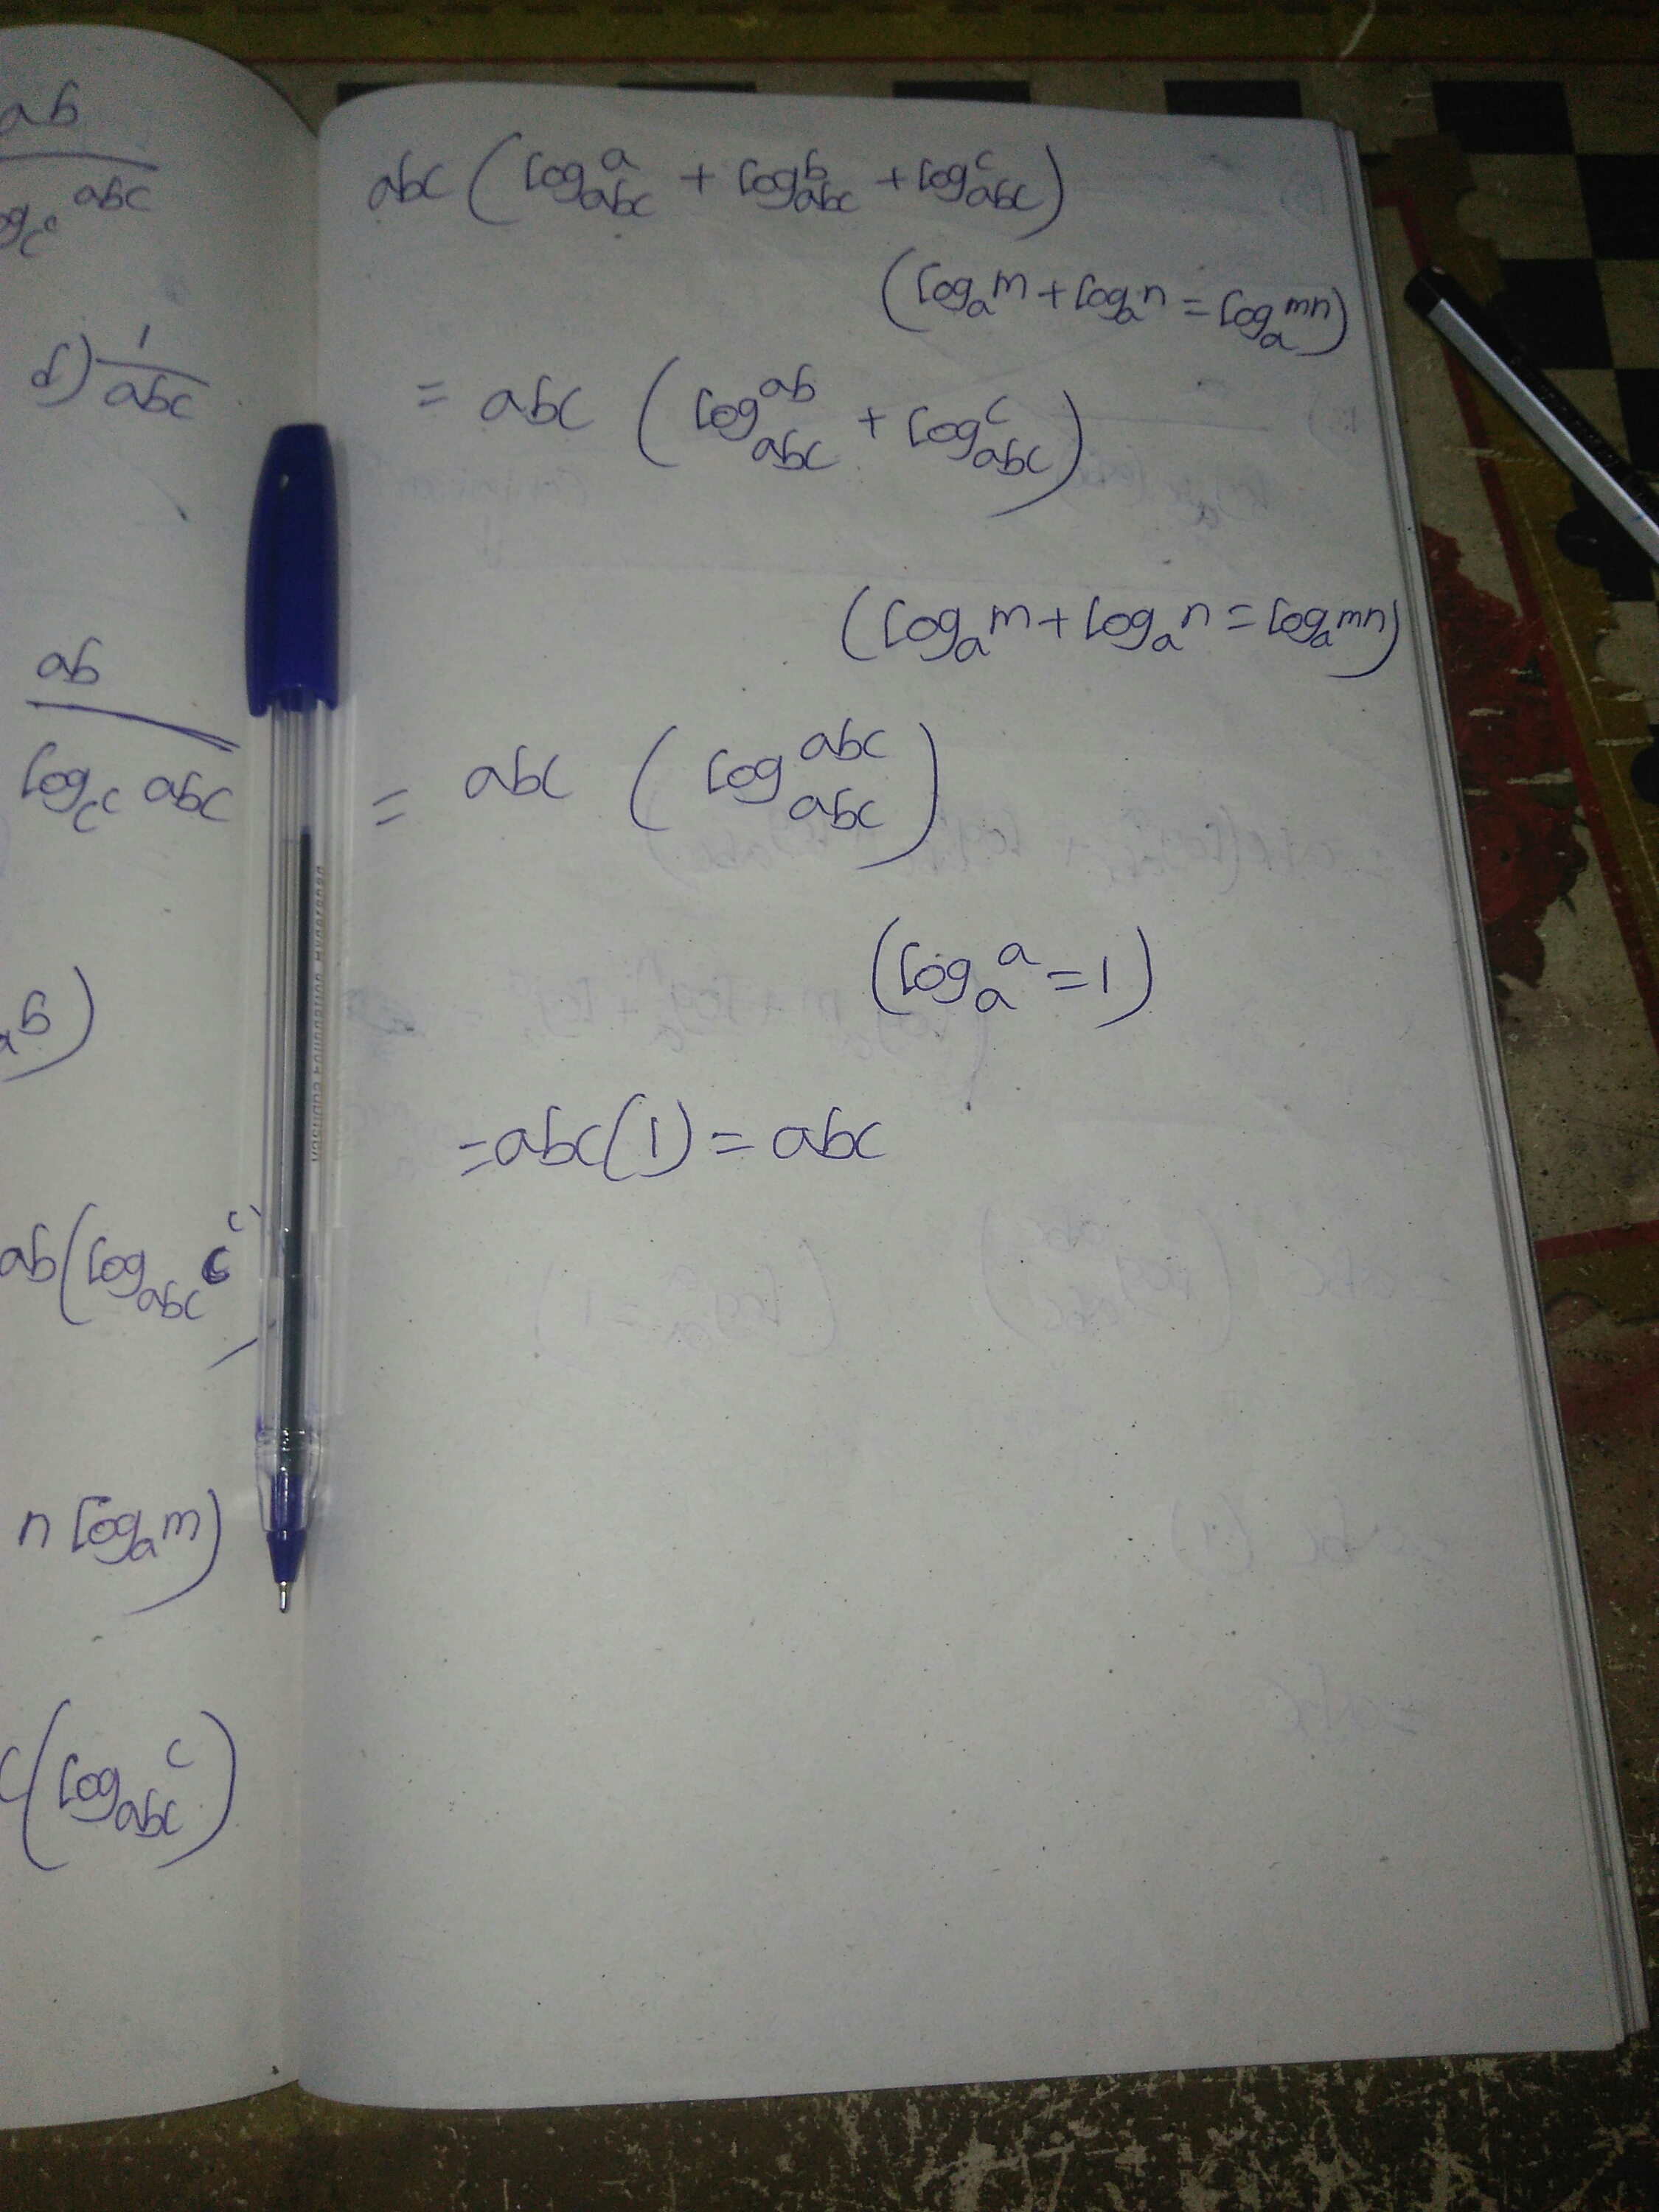 ab
abc
d) 1/abc
ab
log_c^c abc
ab(log_abc c^c
n log_a m)
c(log_abc c)
abc (log_abc a + log_abc b + log_abc c)
(log_a m + log_a n = log_a mn)
= abc (log_abc ab + log_abc c)
(log_a m + log_a n = log_a mn)
= abc (log_abc abc)
(log_a a = 1)
= abc(1) = abc